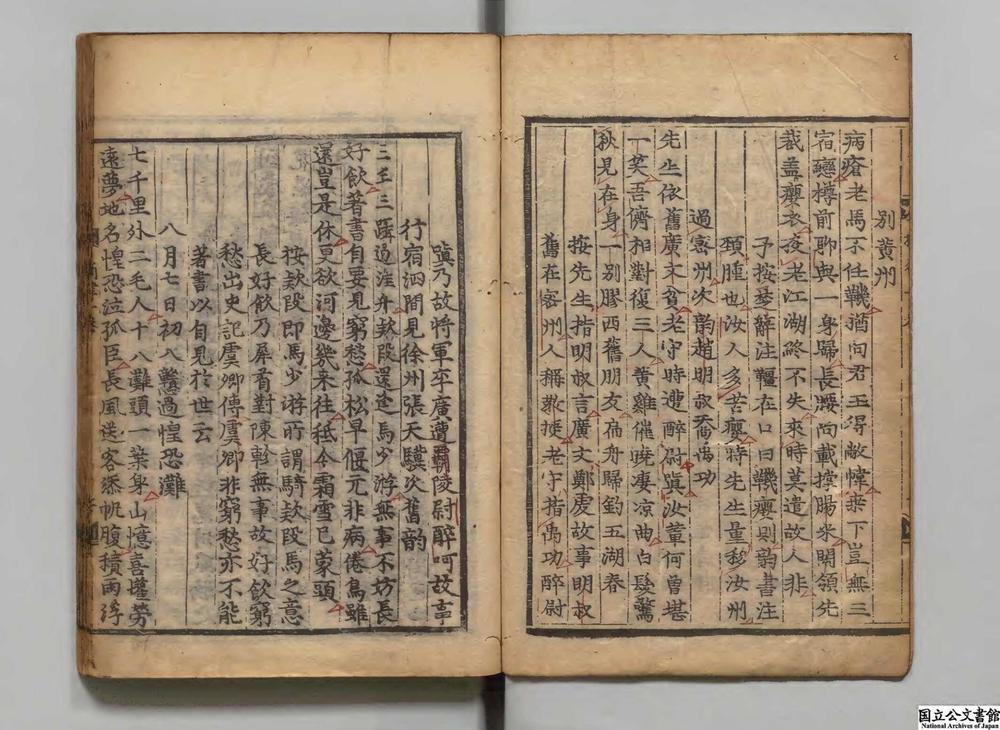 別黄州
病瘡老馬不任鞿猶向君王得敝幃桒下豈無三
宿戀樽前聊與一身歸長腰尚載撐腸米闊領先
裁盖癭衣夜老江湖終不失來時莫遣故人非
予按楚辭注韁在口曰鞿癭則韵書注
頚腫也汝人多苦癭時先生量移汝州
過宻州次韵趙明叔喬禹功
先生依舊廣文貧老守時遭醉尉瞋汝軰何曾堪
一笑吾儕相對復三人黄雞催曉凄凉曲白髮驚
秋見在身一别膠西舊朋友扁舟歸釣五湖春
按先生指明叔言廣文鄭虔故事明叔
舊在宻州人稱敎授老守指禹功醉尉
瞋乃故將軍卒廣遭霸陵尉醉呵故亭
行宿泗間見徐州張天驥次舊韵
二年三躡過淮舟欵段還逢馬少游無事不妨長
好飲著書自要見窮愁孤松早偃元非病倦鳥雖
還豈是休更欲河邊幾来往秪今霜雪已蒙頭
按欵段即馬少游所謂騎欵段馬之意
長好飲乃屏着對陳軫無事故好飲窮
愁出史記虞卿傳虞卿非窮愁亦不能
著書以自見於世云
八月七日初入贛過惶恐灘
七千里外二毛人十八灘頭一葉身山憶喜懽勞
遠夢地名惶恐泣孤臣長風送客添帆腹積雨浮
国立公文書館
National Archives of Japan